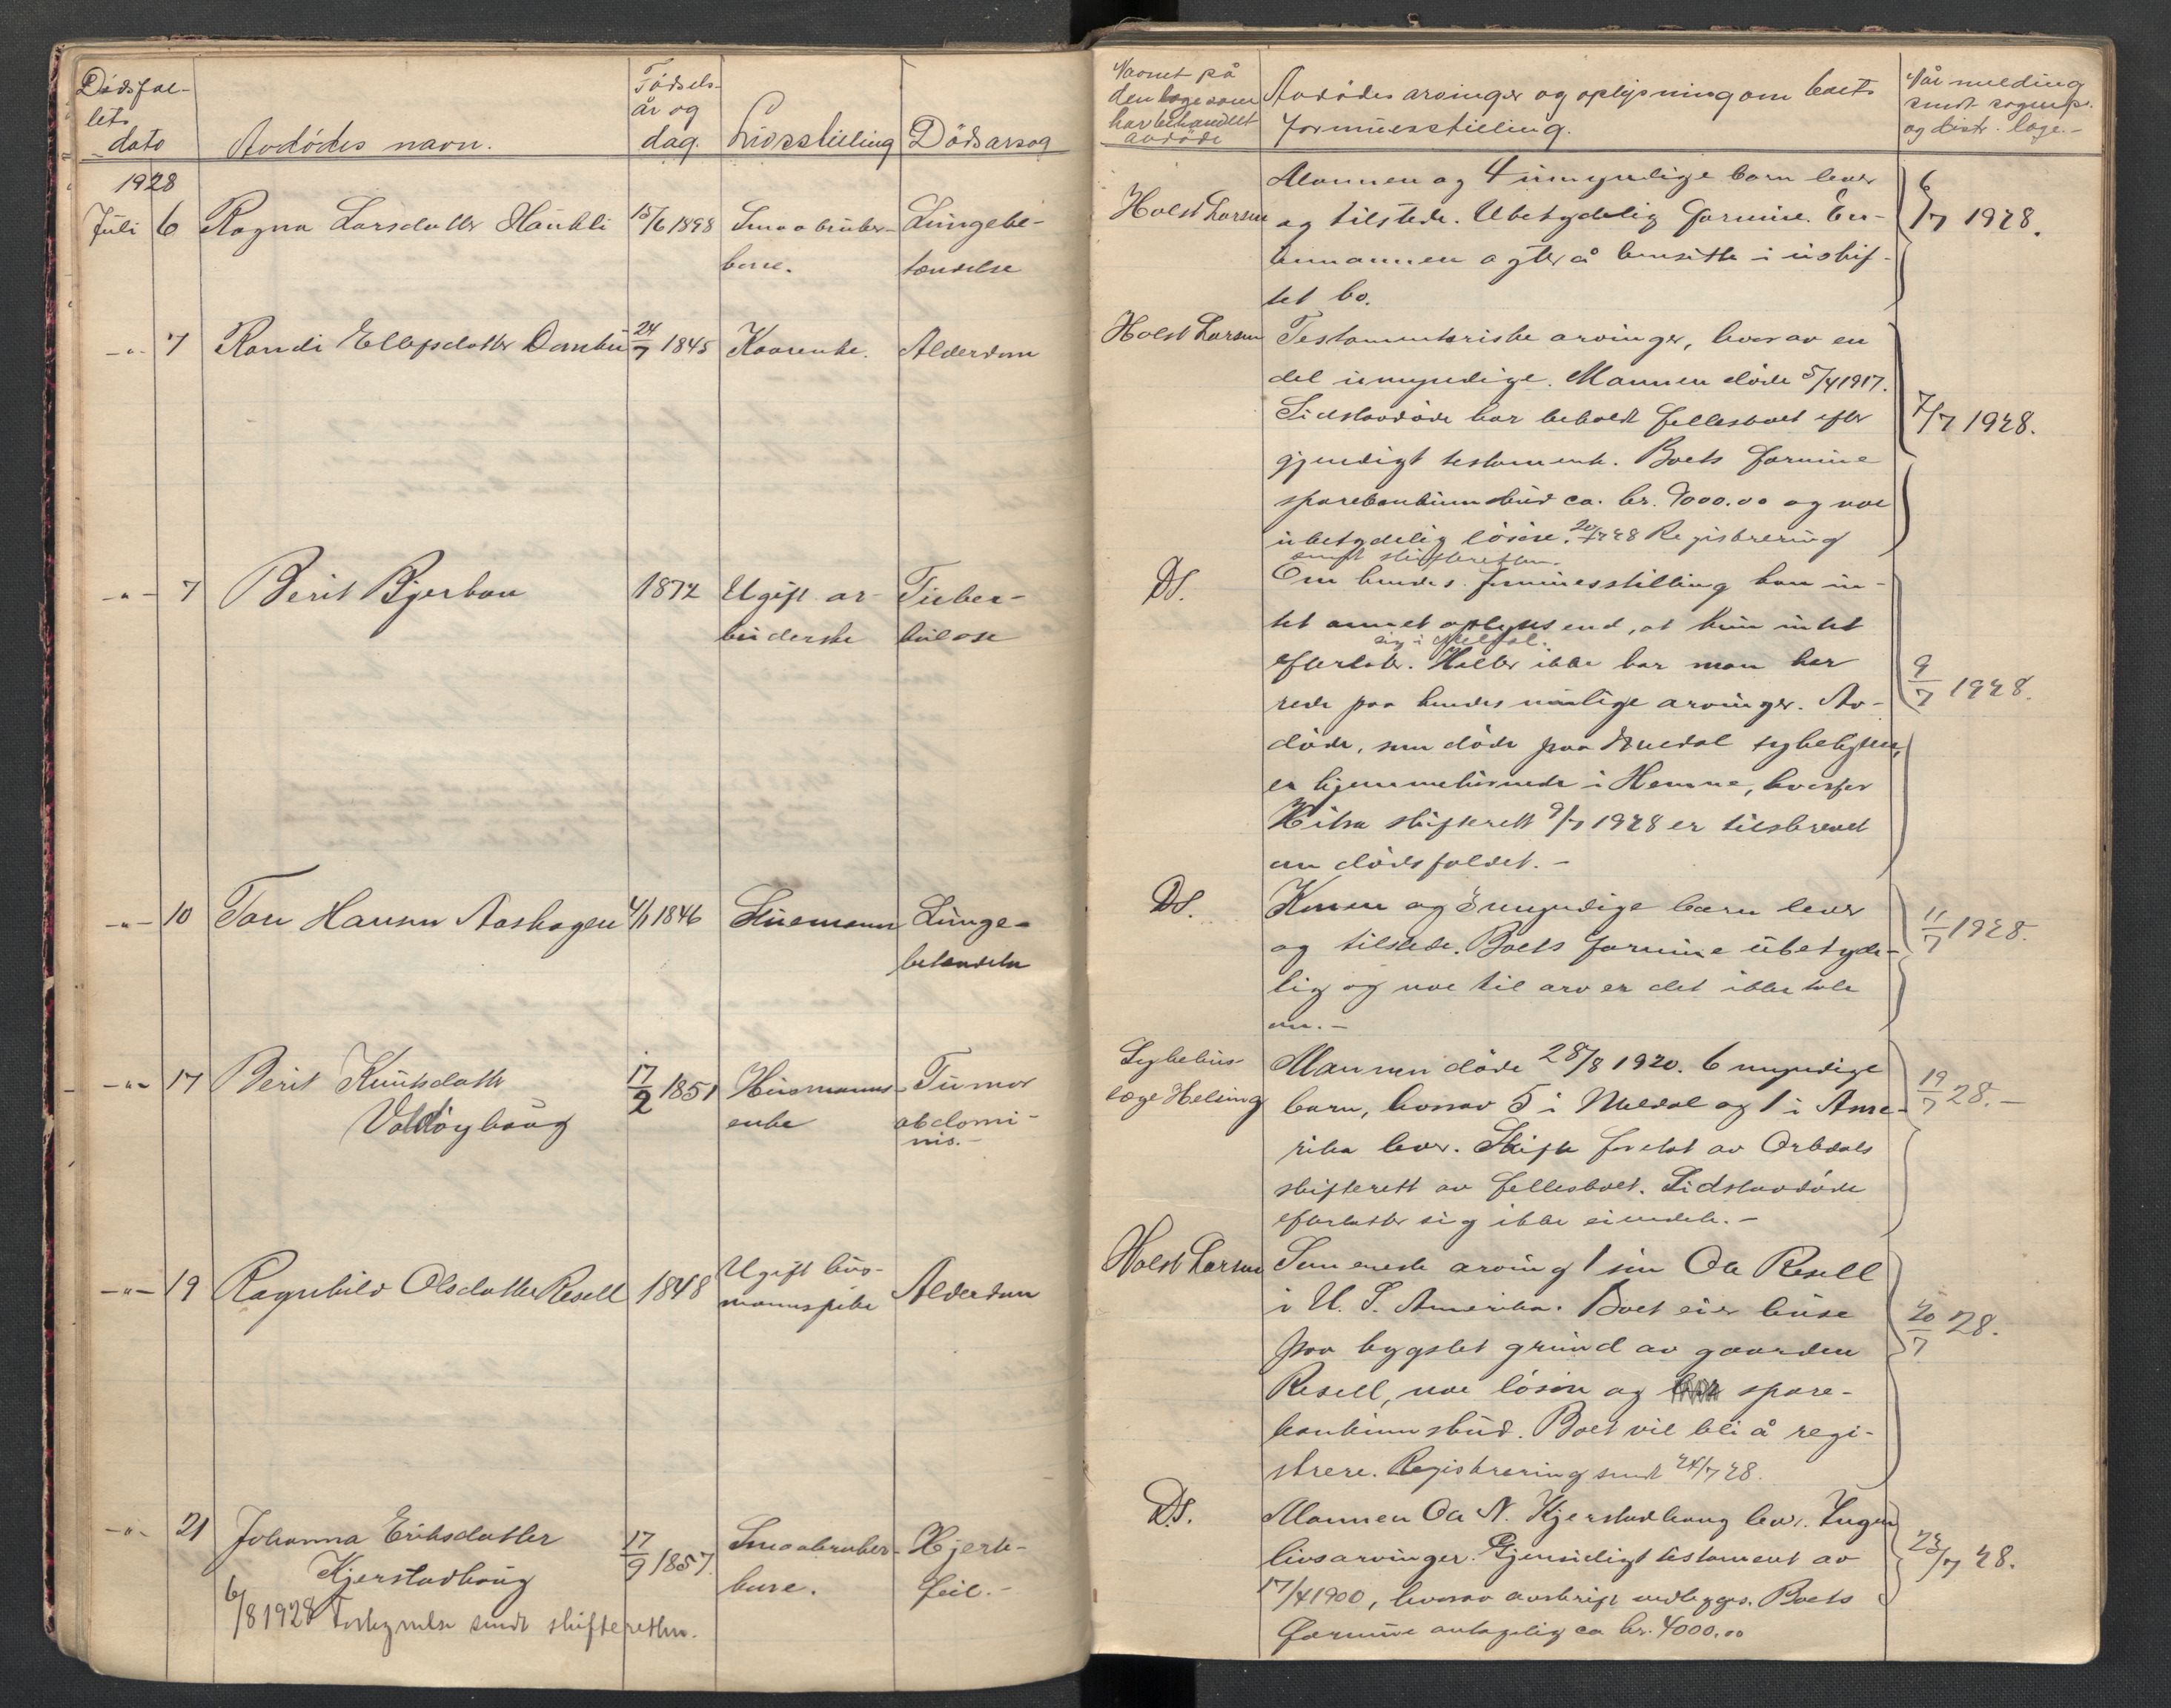 Dødsfal-
lets
dato
Avdødes navn.
Fødsels-
år og
dag.
Livsstilling
Dødsårsag
1928
Juli 6 Ragna Larsdatter Haukli 15/6 1898 Smaabruker- Lungebe-
kone. tændelse
-"- 7 Randi Ellefsdatter Dombu 24/7 1845 Kaarenke. Alderdom
-"- 7 Berit Bjerkan 1872 Ugift ar- Tuber-
beiderske kulose
-"- 10 Tore Hansen Aashagen 4/1 1846 Huemann Lunge-
betændelse
-"- 17 Berit Knutsdatter 17/2 1851 Husmanns- Tumor
Voldøyhaug enke abdomi-
nis.-
-"- 19 Ragnhild Olsdatter Resell 1848 Ugift hus- Alderdom
mannspike
-"- 21 Johanna Eriksdatter 17/9 1857. Smaabruker- Hjerte-
Kjerstadhaug kone. feil.-
6/8 1928 sendt skifteretten.
Navnet på
den læge som
har behandlet
avdøde
Avdødes arvinger og oplysning om boets
formuesstilling.
Når melding
sendt sognep.
og distr. læge.-
Mannen og 4 umyndige barn lever
Holst Larsen og tilstede. Ubetydelig formue. En- 6/7 1928.
kemannen agter å bensitte i uskif-
tet bo.
Holst Larsen Testamentariske arvinger, hvorav en
del umyndige. Mannen døde 5/4 1917.
Sidstavdøde har beholdt fellesboet efter 7/7 1928.
gjensidigt testament. Boets formue
sparebankinnskud ca. kr. 9000.00 og noe
ubetydelig løsøre. 20/7 28 Registrering
sendt skifteretten.
DS. Om hendes formuesstilling kan in-
tet annet oplyses end, at hun intet
sig i Meldal.
efterlater. Heller ikke har man her 9/7 1928.
rede paa hendes mulige arvinger. Av-
døde, som døde paa Meldal sykehjem,
er hjemmehørende i Hemne, hvorfor
Hitra skifterett 9/7 1928 er tilskrevet
om dødsfaldet.-
DS. Konen og 8 myndige barn lever 11/7 1928.
og tilstede. Boets formue ubetyde-
lig og noe til arv er det ikke tale
om.-
Sykehus- Mannen døde 28/8 1920. 6 myndige 19/7 28.-
læge Helsing barn, hvorav 5 i Meldal og 1 i Ame-
rika lever. Skifte foretat av Orkdals
skifterett av fellesboet. Sidstavdøde
efterlater sig ikke eiendele.-
Holst Larsen Som eneste arving 1 søn Ola Resell
i U. S. Amerika. Boet eier huse 20/7 28.
paa bygslet grund av gaarden
Resell, noe løsøre og spare-
bankinnskud. Boet vil bli å regi-
strere. Registrering sendt 24/7 28.
DS. Mannen Ola N. Kjerstadhaug lever. Ingen
livsarvinger. Gjensidigt testament av 23/7 28.
17/4 1900, hvorav avskrift vedlegges. Boets
formue antagelig ca kr. 4000.00